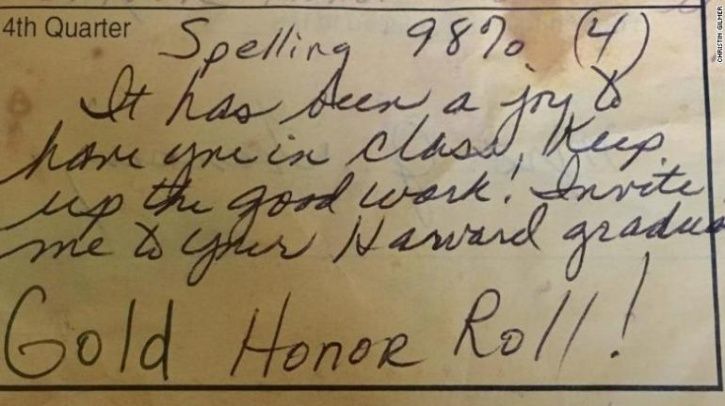 4th Quarter
Spelling 98% (4)
It has been a joy to
have you in class, Keep
up the good work! Invite
me to your Harvard gradua
Gold Honor Roll!
CHRISTIN GILMER